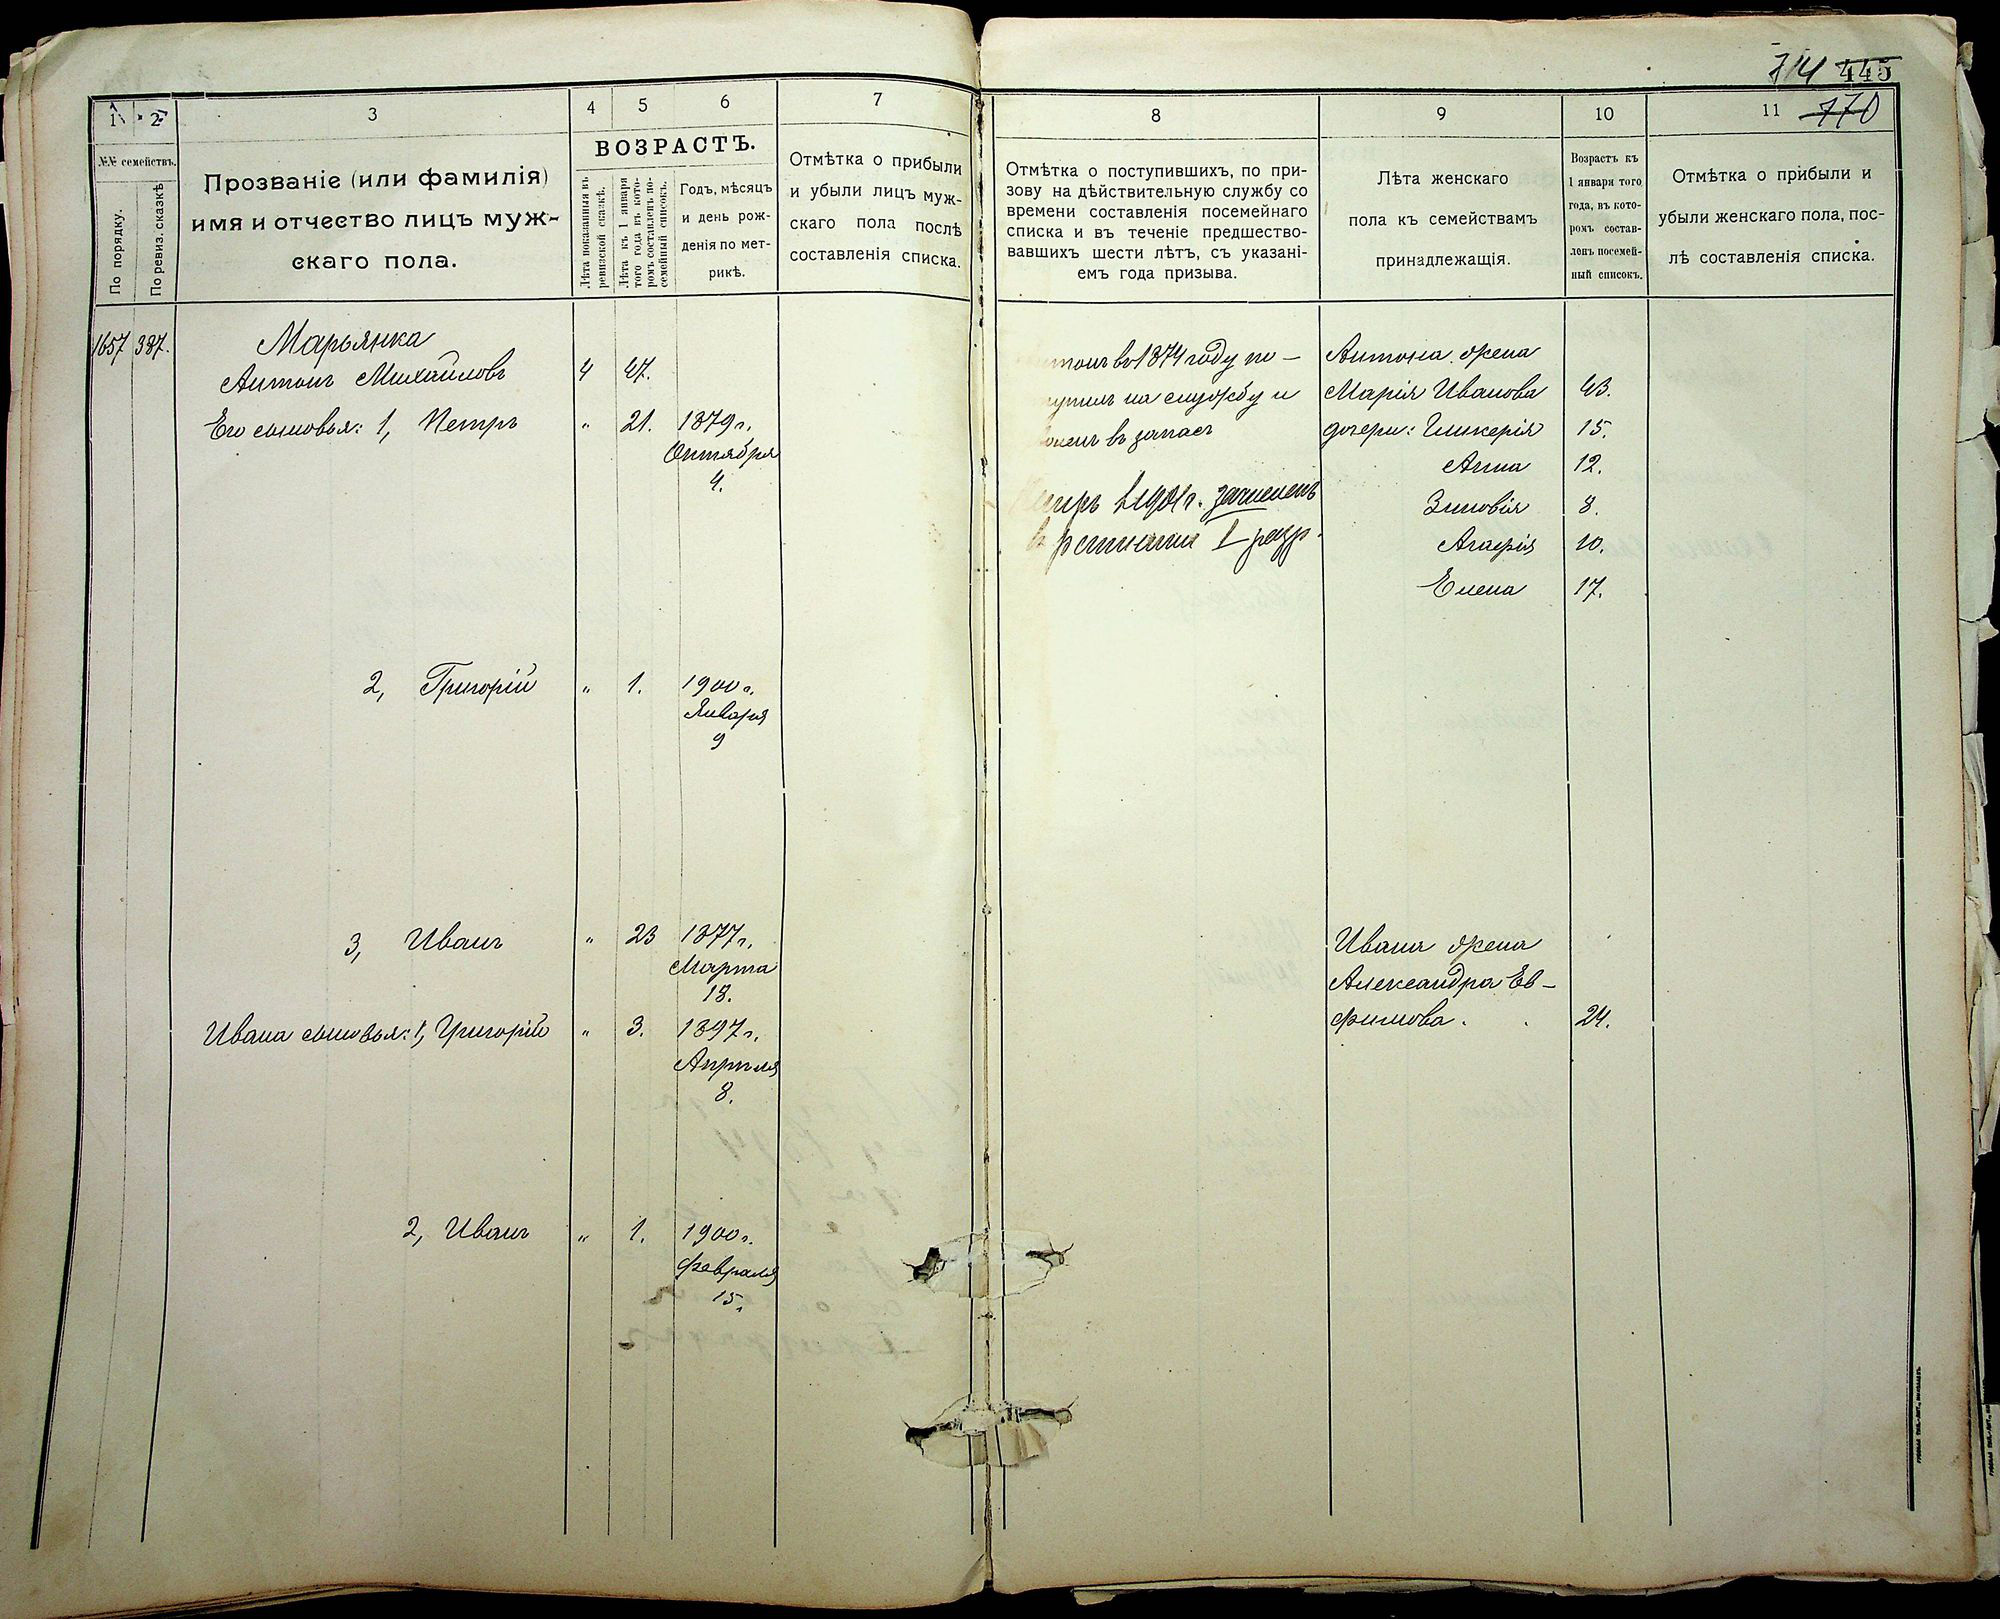 714 445
1 2 3 4 5 6 7 8 9 10 11 770
№№ семействъ.
По порядку.
По ревиз. сказкѣ
Прозваніе (или фамилія)
имя и отчество лицъ муж-
скаго пола.
ВОЗРАСТЪ.
Лѣта показанныя въ
ревизской сказкѣ.
Лѣта къ 1 января
того года въ кото-
ромъ составленъ по-
семейный списокъ.
Годъ, мѣсяцъ
и день рож-
денія по мет-
рикѣ.
Отмѣтка о прибыли
и убыли лицъ муж-
скаго пола послѣ
составленія списка.
Отмѣтка о поступившихъ, по при-
зову на дѣйствительную службу со
времени составленія посемейнаго
списка и въ теченіе предшество-
вавшихъ шести лѣтъ, съ указані-
емъ года призыва.
Лѣта женскаго
пола къ семействамъ
принадлежащія.
Возрастъ къ
1 января того
года, въ кото-
ромъ состав-
ленъ посемей-
ный списокъ.
Отмѣтка о прибыли и
убыли женскаго пола, пос-
лѣ составленія списка.
1657 387. Марьянка
Антонъ Михайловъ 4 47.
Его сыновья: 1, Петръ " 21. 1879 г.
Октября
4.
2, Григорій " 1. 1900 г.
Января
9
3, Иванъ " 23 1877 г.
Марта
18.
Ивана сыновья: 1, Григорій " 3. 1897 г.
Апрѣля
8.
2, Иванъ " 1. 1900 г.
Февраля
15.
въ 1874 году по-
на службу и
въ запасъ
зачисленъ
въ ратники I разр.
Антона жена
Марія Иванова 43.
дочери: Гликерія 15.
Анна 12.
Зиновія 8.
Агафія 10.
Елена 17.
Ивана жена
Александра Ев-
фимова. 24.